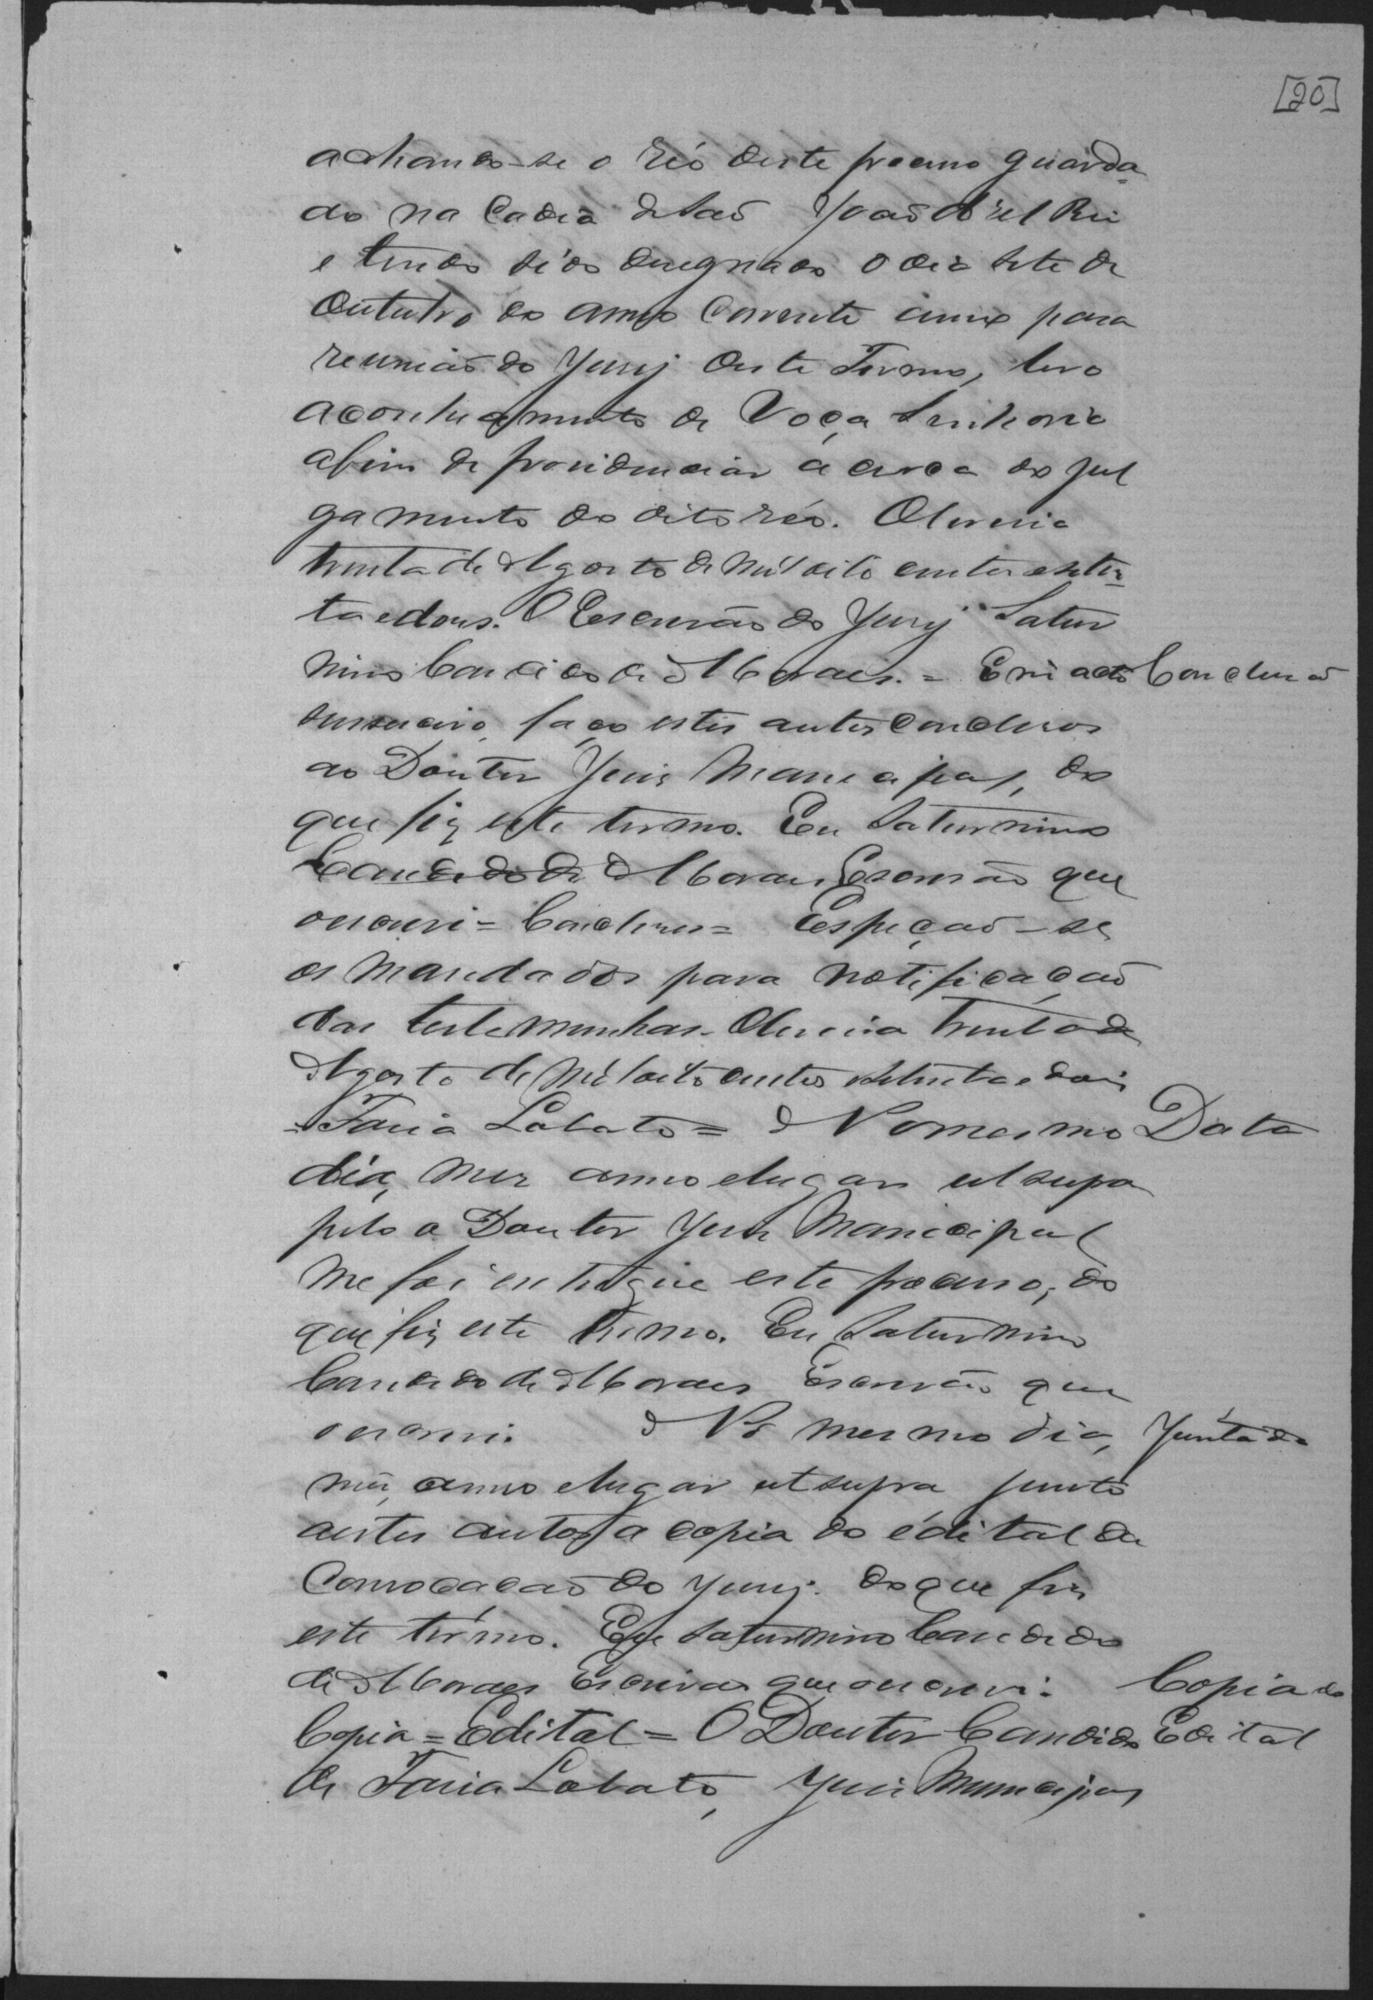 [20]
achando-se o reo deste processo guarda-
do na Cadeia de Saõ Joaõ d'El Rei
e tendo sido designado o dia sete de
Outubro do anno corrente para
reuniaõ do Jury deste Termo, levo
ao conhecimento de Voça Senhoria
afim de providenciar á cerca do jul
gamento do dito réo. Oliveira
trinta de Agosto de mil oito centos e seten-
ta e dous. O Escrivão do Jury Satur
nino Candido de Moraes. = E no acto Concluzaõ
sucessivo, faço estes autos concluzos
ao Doutor Juis Municipal, do
que fiz este termo. Eu Saturnino
Candido de Moraes, Escrivão que
o escrevi = Concluzos = Espeçaõ-se
os mandados para notificaçaõ
das testemunhas. Oliveira trinta de
Agosto de mil oito centos setenta e dois
= Faria Lobato = No mesmo Data
dia, mez anno e lugar ut supra
pelo o Doutor Juis Municipal
me foi entregue este processo, do
que fiz este termo. Eu Saturnino
Candido de Moraes Escrivão que
o escrevi. No mesmo dia, Juntada
mez, anno e lugar ut supra junto
a estes autos a copia do édital de
Convocacaõ do Jury. do que fiz
este termo. Eu Saturnino Candido
de Moraes Escrivaõ que o escrevi. Copia do
Copia = Edital = O Doutor Candido Edital
de Faria Lobato, Juis Municipal